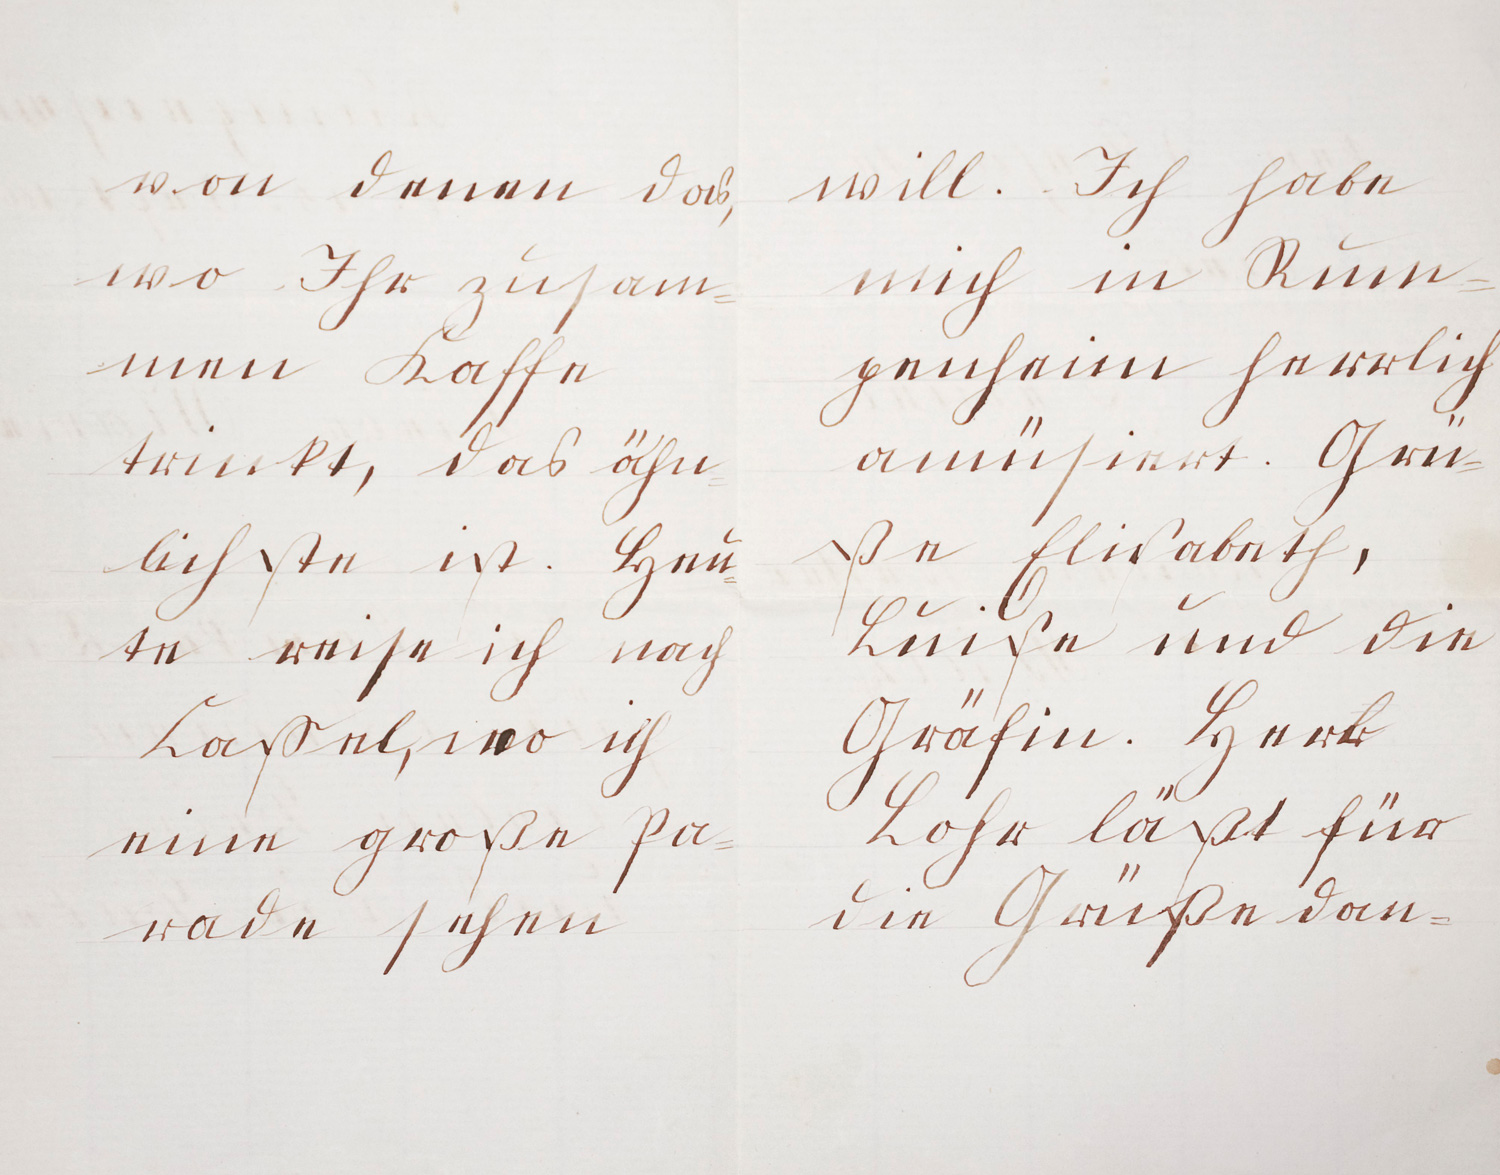 von denen das,
wo Ihr zusam=
men Kaffe
trinkt, das ähn=
lichste ist. Heu=
te reise ich nach
Kassel, wo ich
eine große Pa=
rade sehen
will. Ich habe
mich in Rum=
penheim herrlich
amüsiert. Grü=
ße Elisabeth,
Luise und die
Gräfin. Herr
Lohr läßt für
die Grüße dan=